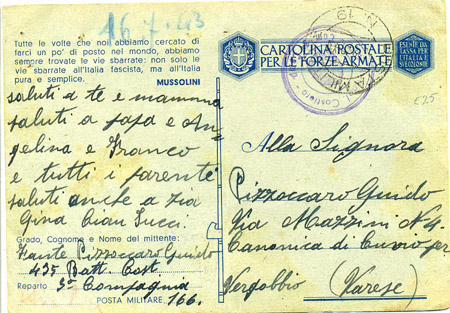 16.7.43
Tutte le volte che noi abbiamo cercato di
farci un po' di posto nel mondo, abbiamo
sempre trovate le vie sbarrate: non solo le
vie sbarrate all'Italia fascista, ma all'Italia
pura e semplice.
MUSSOLINI
saluti a te e mamma
saluti a papa e An
gelina e Franco
e tutti i parenti
saluti anche a zia
Gina Ciau
Grado, Cognome e Nome del mittente:
Fante Pizzoccaro Guido
435 Batt Cost
Reparto 3a Compagnia
POSTA MILITARE, 166.
CARTOLINA POSTALE
PER LE FORZE ARMATE
ESENTE DA
TASSA PER
L'ITALIA E
SUE COLONIE
POSTA MILIT
N. 19
Costiero
£25
Alla Signora
Pizzoccaro Guido
Via Mazzini N 4.
Canonica di Cuvio per
Vergobbio (Varese)